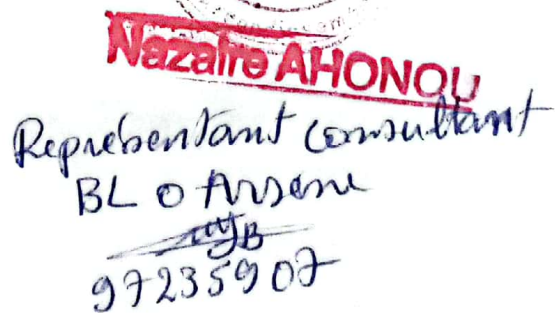 Nazaire AHONOU
Représentant consultant
BL O Arsène
97235907